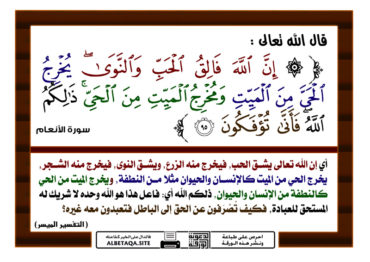 قال الله تعالى :
﴿ ۞ إِنَّ ٱللَّهَ فَالِقُ ٱلْحَبِّ وَٱلنَّوَىٰ ۖ يُخْرِجُ
ٱلْحَيَّ مِنَ ٱلْمَيِّتِ وَمُخْرِجُ ٱلْمَيِّتِ مِنَ ٱلْحَيِّ ۚ ذَٰلِكُمُ
ٱللَّهُ ۖ فَأَنَّىٰ تُؤْفَكُونَ ٩٥ ﴾ سورة الأنعام
أي إن الله تعالى يشق الحب، فيخرج منه الزرع، ويشق النوى، فيخرج منه الشجر،
يخرج الحي من الميت كالإنسان والحيوان مثلا من النطفة، ويخرج الميت من الحي
كالنطفة من الإنسان والحيوان، ذلكم الله أي: فاعل هذا هو الله وحده لا شريك له
المستحق للعبادة، فكيف تُصْرفون عن الحق إلى الباطل فتعبدون معه غيره؟
( التفسير الميسر )
احرص على طباعة
ونشر هذه الورقة
فالدال على الخير كفاعله
ALBETAQA.SITE